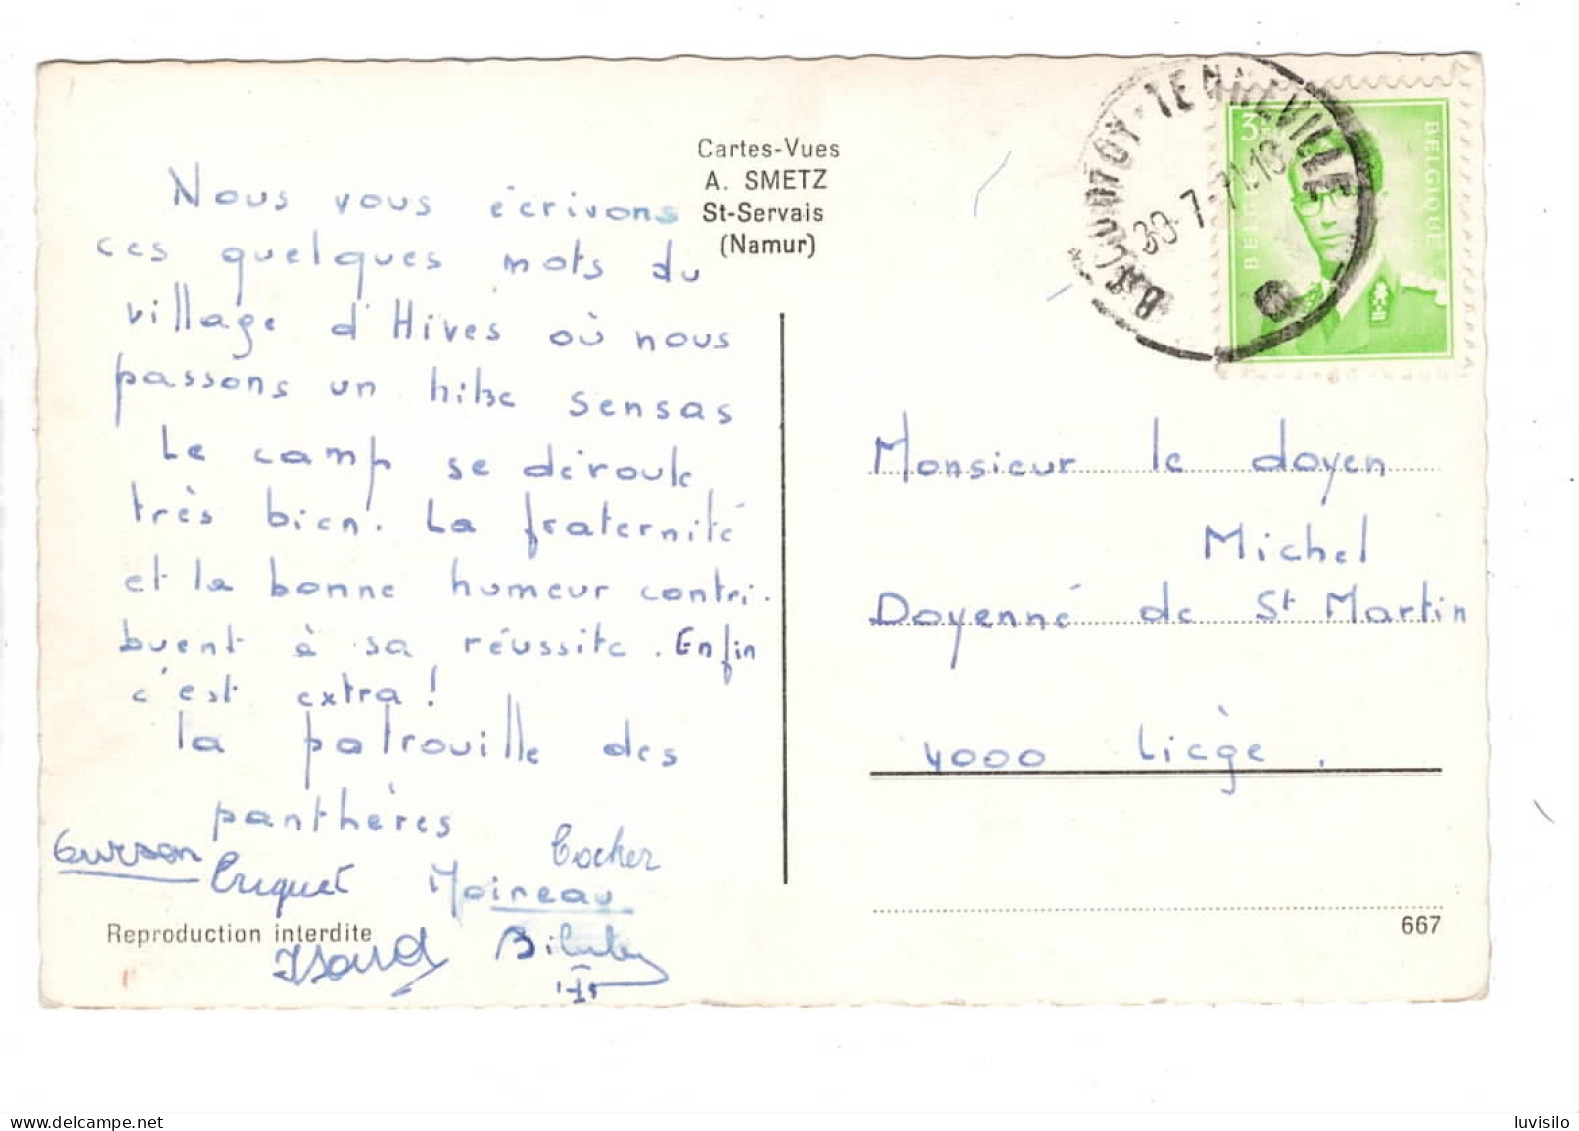 Cartes-Vues
A. SMETZ
St-Servais
(Namur)
Nous vous écrivons
ces quelques mots du
village d'Hives où nous
passons un hike sensas
Le camp se déroule
très bien. La fraternité
et la bonne humeur contri-
buent à sa réussite. Enfin
c'est extra!
la patrouille des
panthères
Cocher
Criquet Moireau
Isard
Reproduction interdite
TENNEVILLE
30-7-71-18
3F
BELGIE
BELGIQUE
Monsieur le doyen
Michel
Doyenné de St Martin
4000 Liège.
667
luvisilo